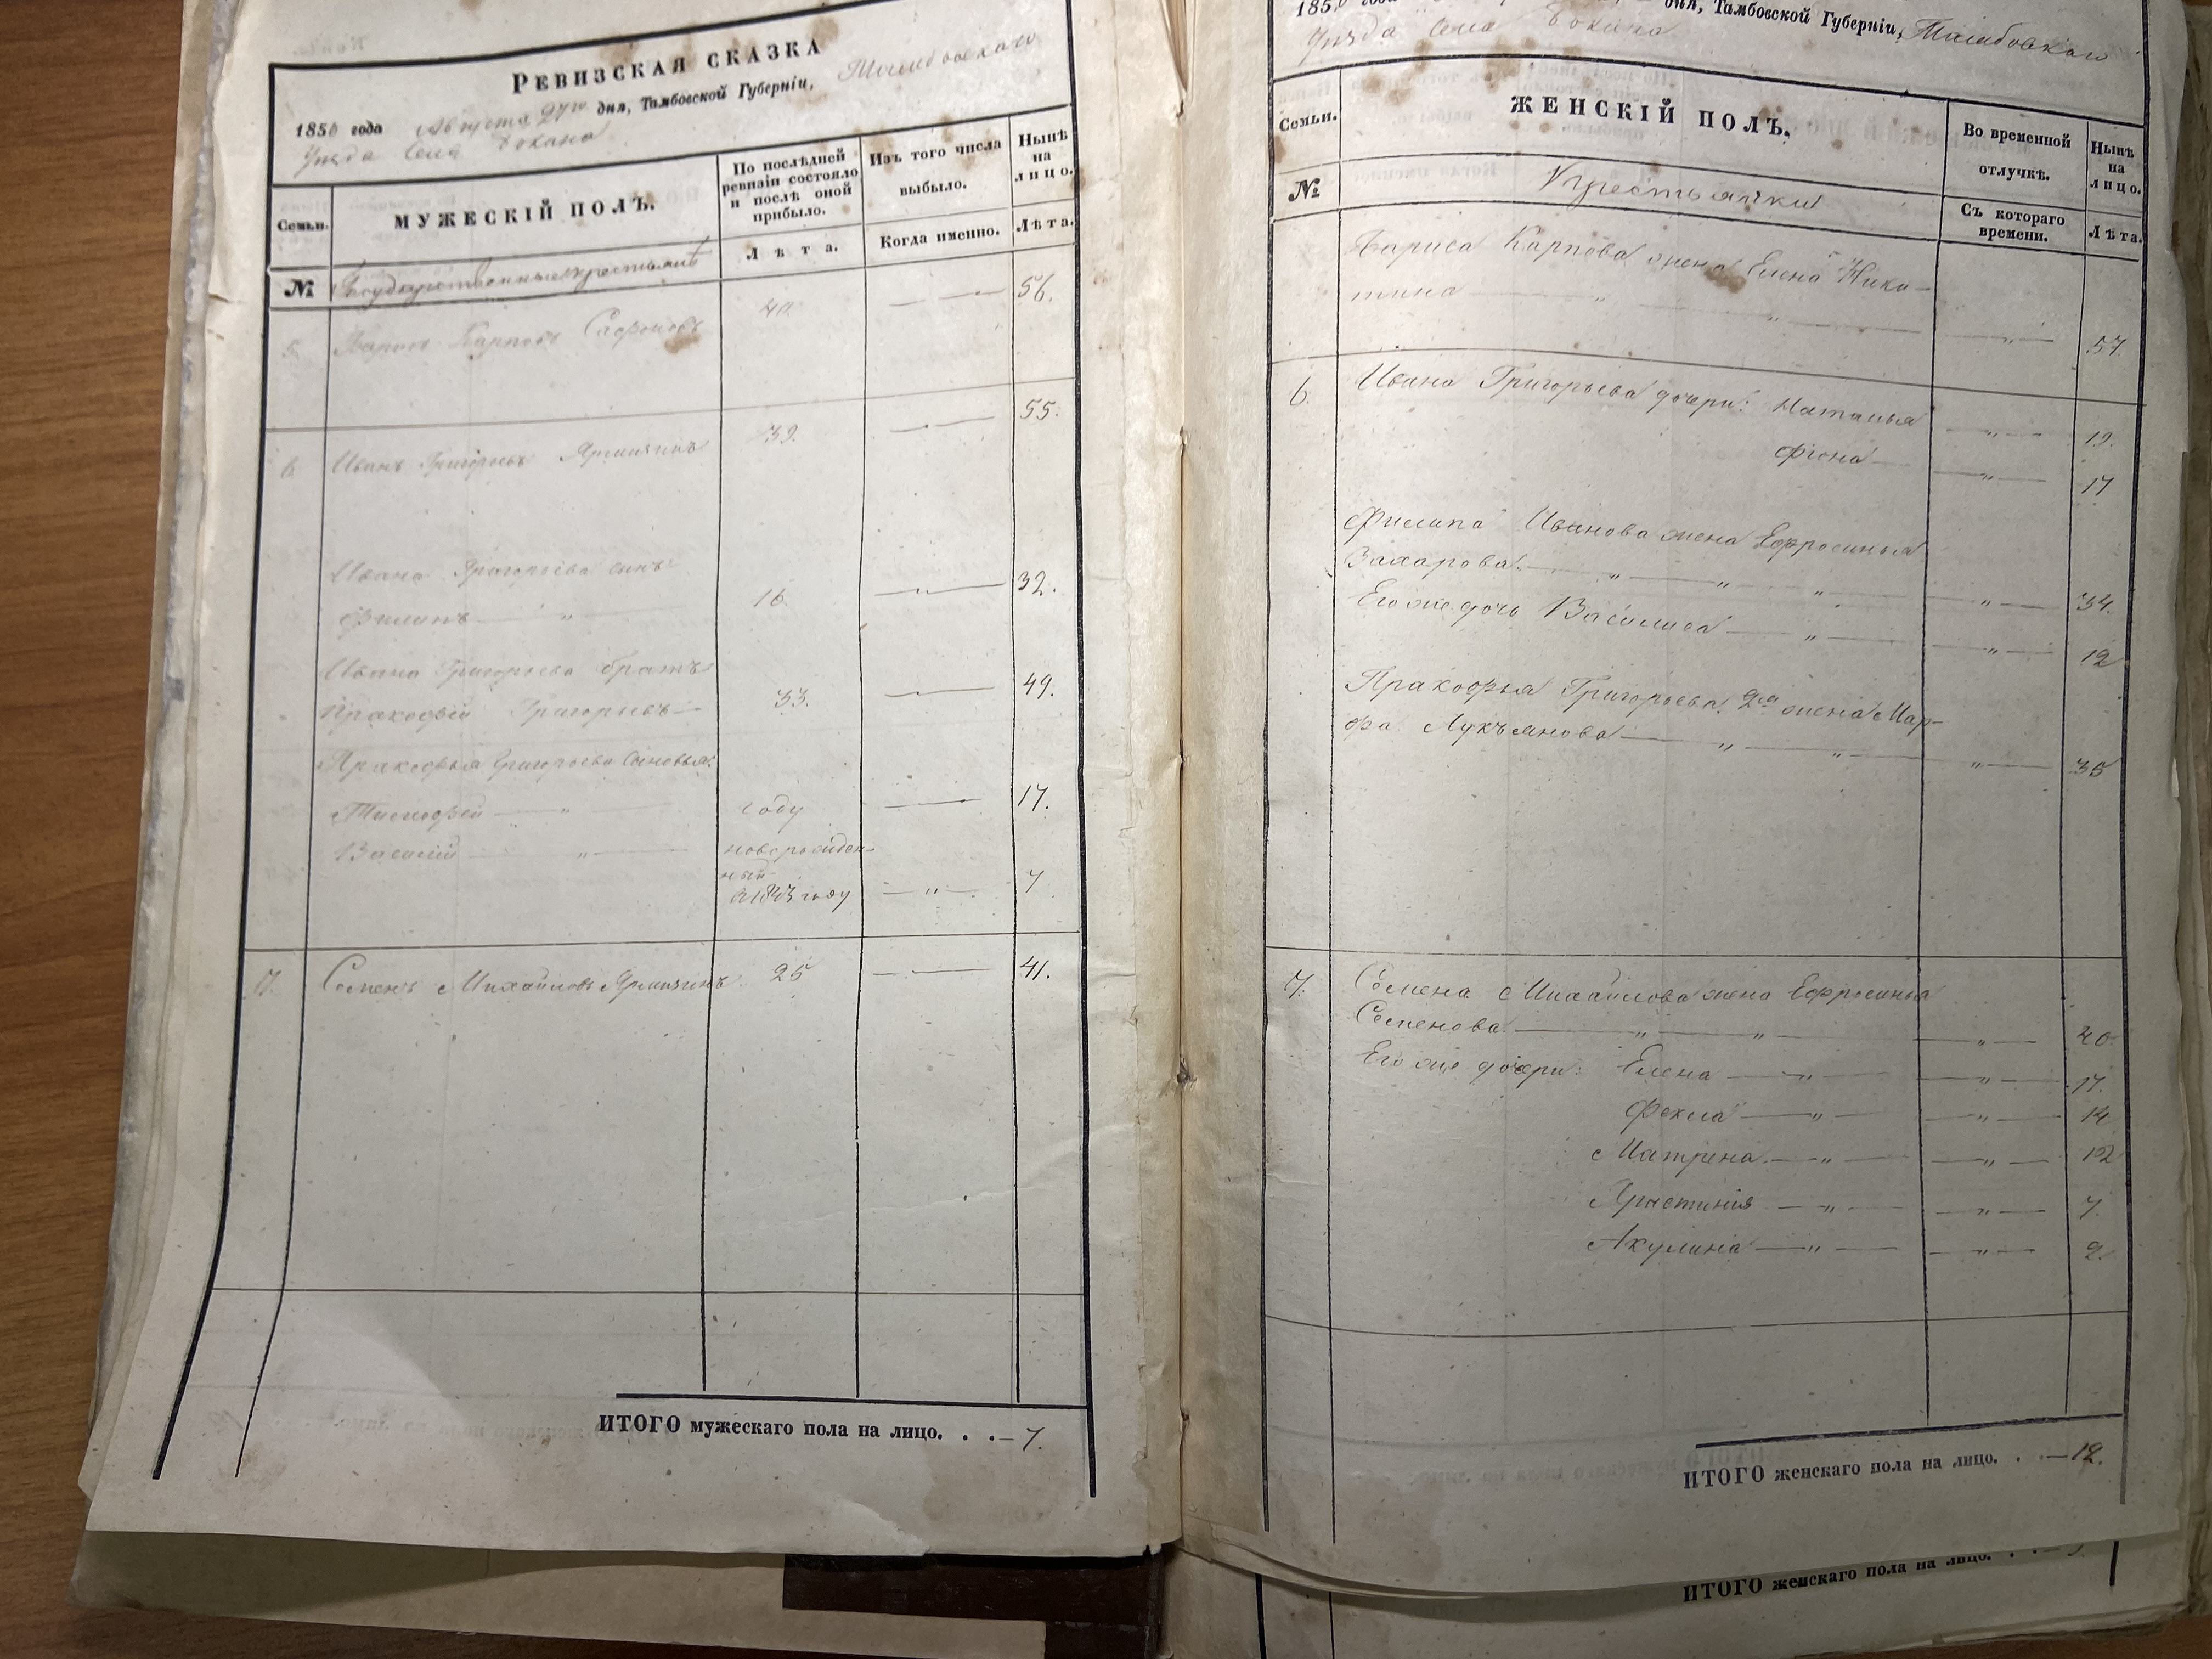 РЕВИЗСКАЯ СКАЗКА
1850 года Августа 27го дня, Тамбовской Губерніи, Тамбовскаго
Уѣзда Села Бокина
Семьи.
МУЖЕСКІЙ ПОЛЪ.
По послѣдней ревизіи состояло и послѣ оной прибыло.
Изъ того числа выбыло.
Нынѣ на лицо.
№
Государственные крестьяне
Лѣта.
Когда именно.
Лѣта.
5. Барисъ Карповъ Сафоновъ 40. — „ — 56.
6. Иванъ Григорьевъ Ярмизинъ 39. — „ — 55.
Ивана Григорьева сынъ
Филипъ — „ — 16. — „ — 32.
Ивана Григорьева братъ
Пракофій Григорьевъ — 33. — „ — 49.
Пракофья Григорьева Сыновья:
Тимофей — „ — году — „ — 17.
Василій — „ — новорожден-
ный
в 1843 году — „ — 7
7. Семенъ Михайловъ Ярмизинъ 25 — „ — 41.
ИТОГО мужескаго пола на лицо. . . — 7.
1850 года дня, Тамбовской Губерніи, Тамбовскаго
Уѣзда Села Бокина
Семьи.
ЖЕНСКІЙ ПОЛЪ.
Во временной отлучкѣ.
Нынѣ на лицо.
№
Крестьянки
Съ котораго времени.
Лѣта.
Бариса Карпова жена Елена Ники-
тина — „ — „ — „ — 57
6. Ивана Григорьева дочери: Наталья — „ — 19.
Фіона — „ — 17
Филипа Иванова жена Ефросинья
Захарова. — „ — „ — „ — „ — 34.
Его же дочь Василиса — „ — „ — 12
Пракофья Григорьева 2я жена Мар-
фа Лукъянова — „ — „ — „ — 35
7. Семена Михайлова жена Ефросинья
Семенова — „ — „ — „ — 40.
Его же дочери: Елена — „ — „ — 17.
Фекла — „ — „ — 14
Матрена — „ — „ — 12
Христинія — „ — „ — 7.
Акулина — „ — „ — 2.
ИТОГО женскаго пола на лицо. . — 12.
ИТОГО женскаго пола на лицо. . .